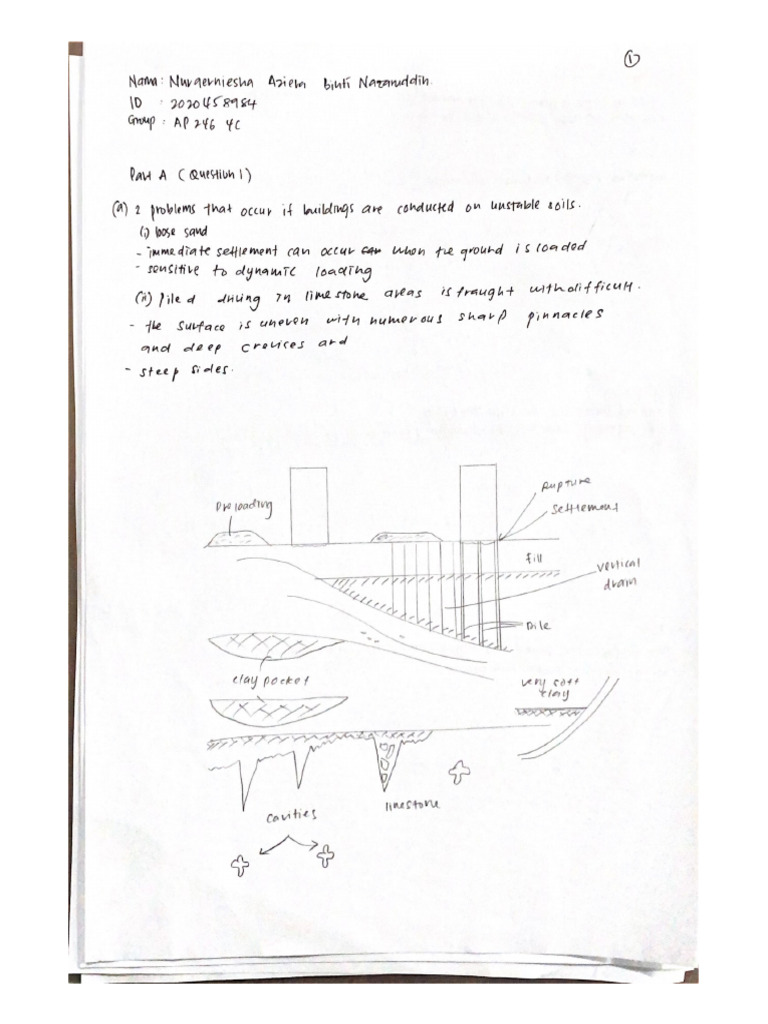 ①
Nama: Nurqerniesha Aziera binti Nazaruddin.
ID : 2020458984
Group : AP 246 4C
Part A (Question 1)
(a) 2 problems that occur if buildings are conducted on unstable soils.
(i) loose sand
- immediate settlement can occur when the ground is loaded
- sensitive to dynamic loading
(ii) piled driving in limestone areas is fraught with difficult.
- the surface is uneven with numerous sharp pinnacles
and deep crevices and
- steep sides.
Rupture
settlement
Preloading
fill
vertical
drain
pile
clay pocket
very soft
clay
limestone
cavities